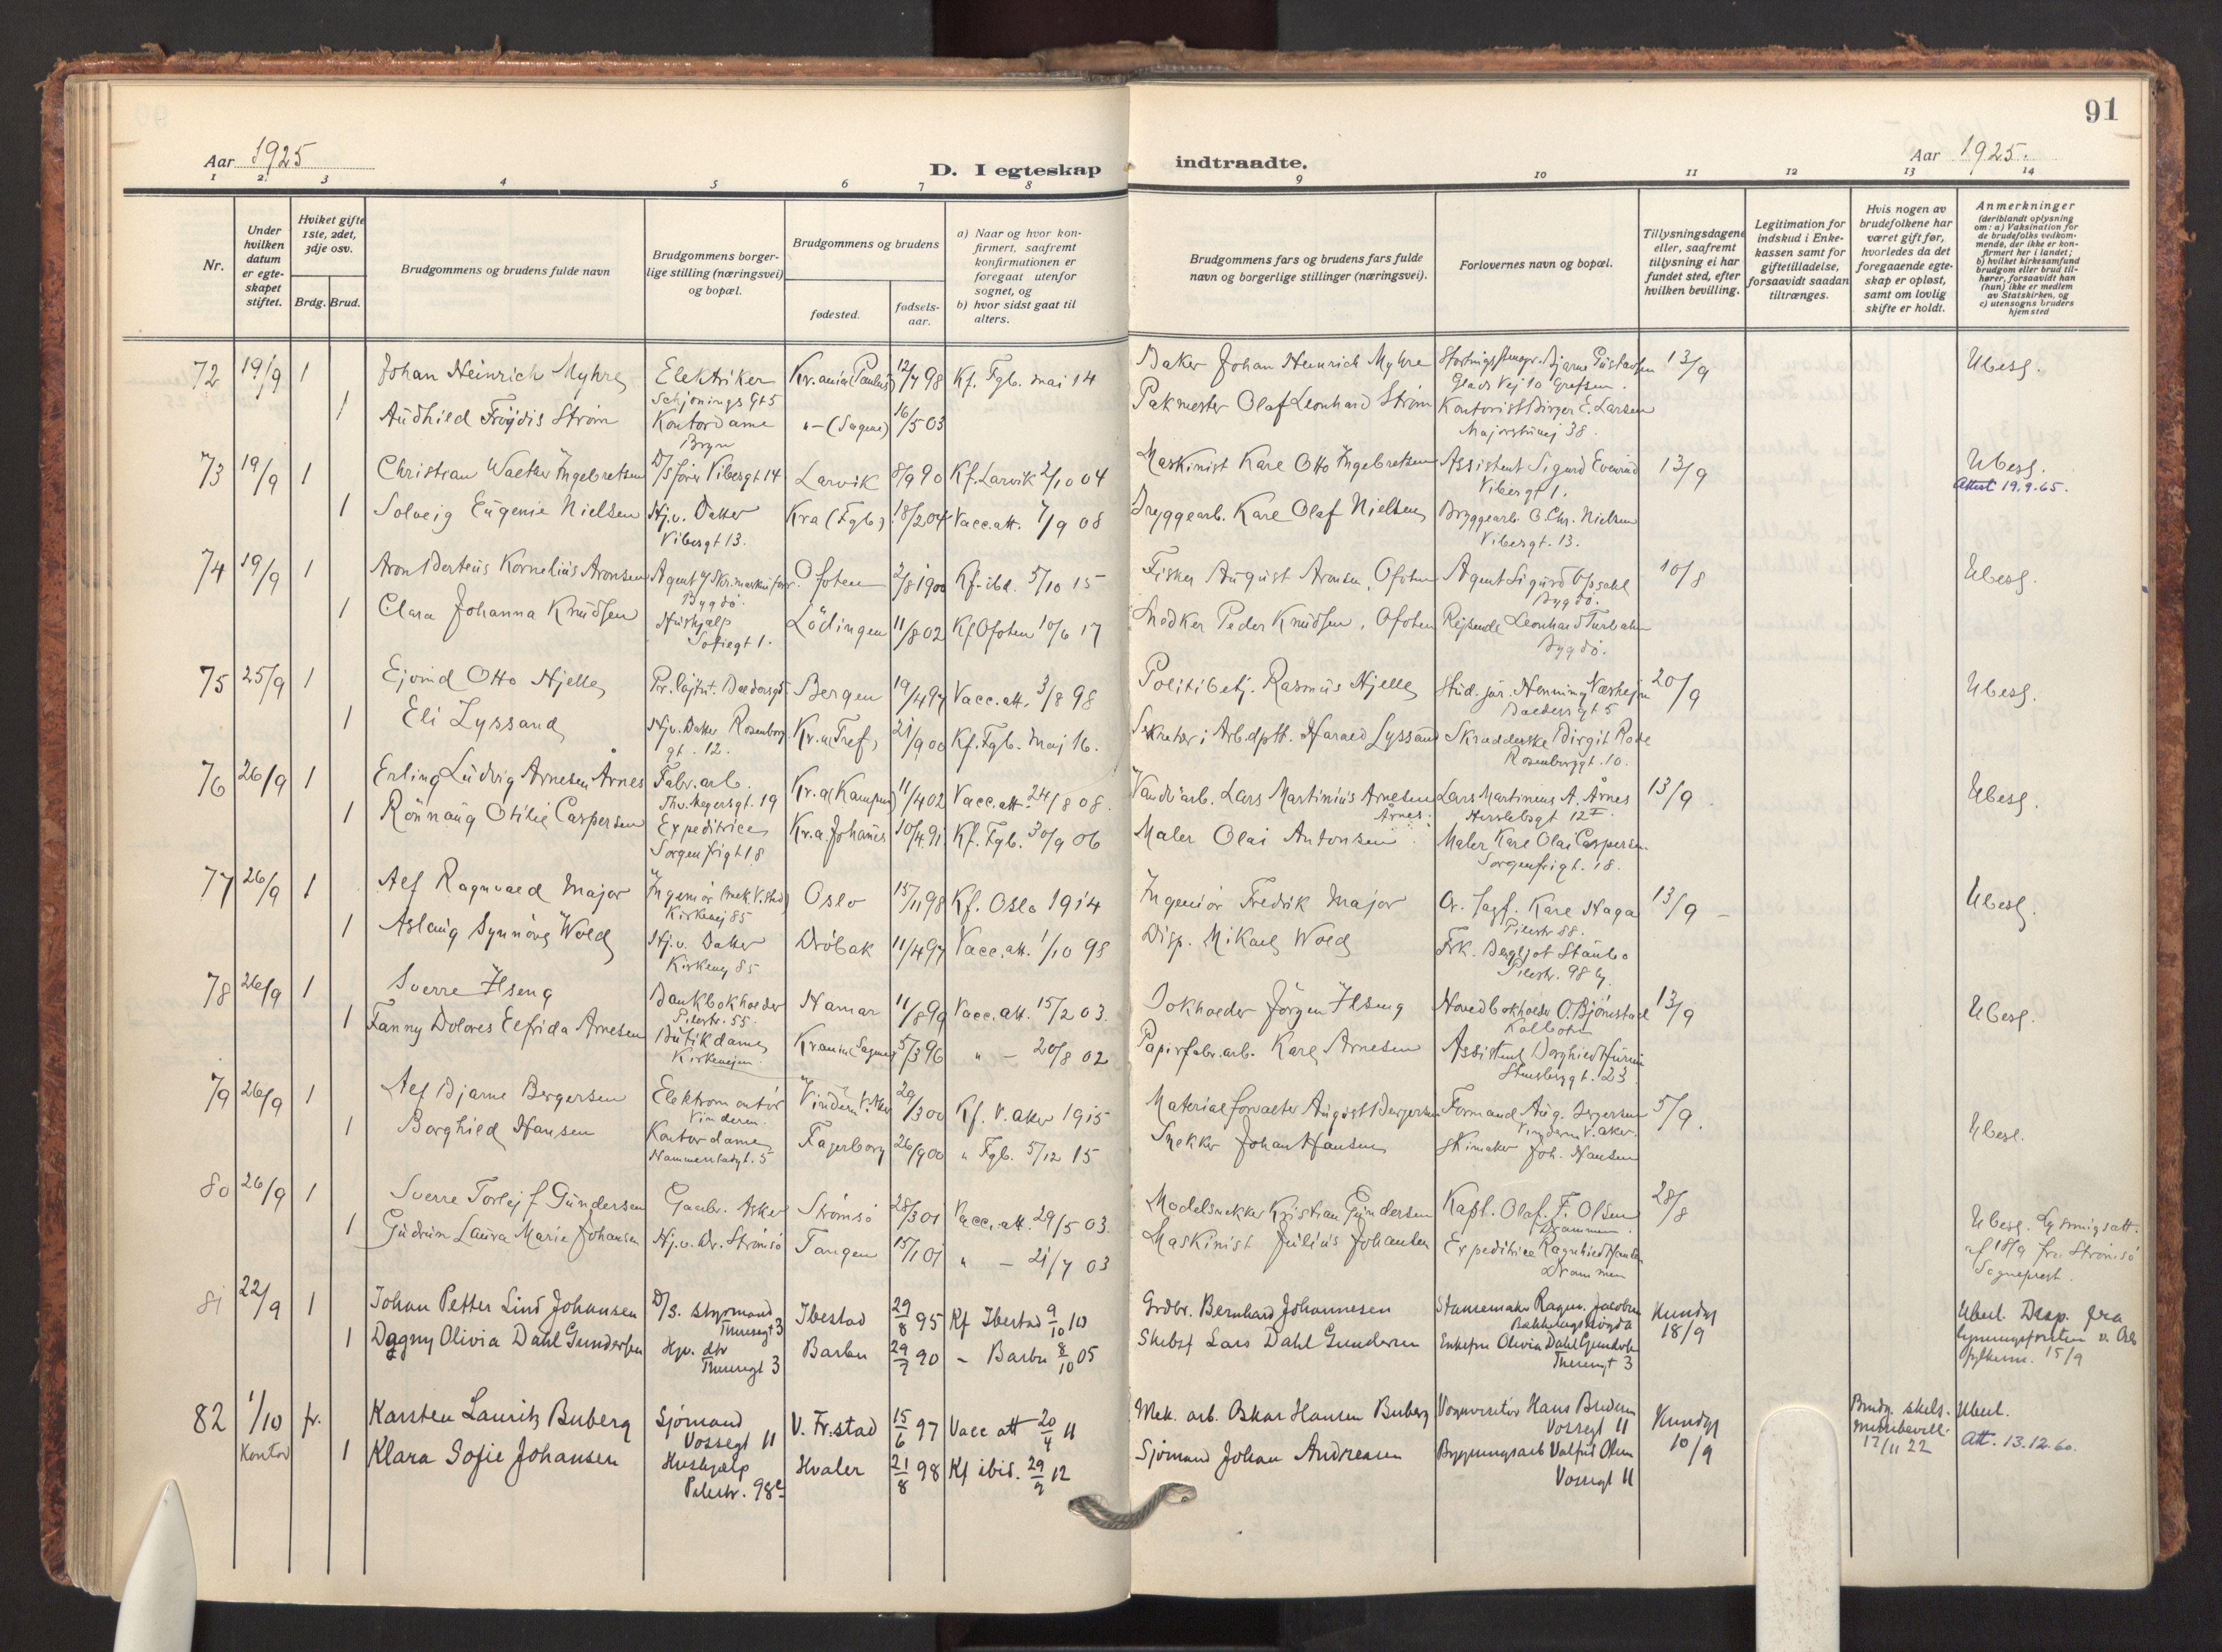 91
Aar 1925
D. I egteskap
indtraadte.
Aar 1925.
1 2 3 4 5 6 7 8 9 10 11 12 13 14
Nr.
Under hvilken datum er egte-skapet stiftet.
Hviket gifte 1ste, 2det, 3dje osv.
Brdg. Brud.
Brudgommens og brudens fulde navn
Brudgommens borger-lige stilling (næringsvei) og bopæl.
Brudgommens og brudens
fødested.
fødsels-aar.
a) Naar og hvor kon-firmert, saafremt konfirmationen er foregaat utenfor sognet, og
b) hvor sidst gaat til alters.
Brudgommens fars og brudens fars fulde navn og borgerlige stillinger (næringsvei).
Forlovernes navn og bopæl.
Tillysningsdagene eller, saafremt tillysning ei har fundet sted, efter hvilken bevilling.
Legitimation for indskud i Enke-kassen samt for giftetilladelse, forsaavidt saadan tiltrænges.
Hvis nogen av brudefolkene har været gift før, hvorledes da det foregaaende egte-skap er opløst, samt om lovlig skifte er holdt.
Anmerkninger
(deriblandt oplysning om: a) Vaksination for de brudefolks vedkom-mende, der ikke er kon-firmert her i landet; b) hvilket kirkesamfund brudgom eller brud til-hører, forsaavidt han (hun) ikke er medlem av Statskirken, og c) utensogns bruders hjemsted
72 19/9 1 Johan Heinrich Myhre Elektriker Kr.ania (Paulus) 12/7 98 Kf. Fgb. mai 14 Baker Johan Heinrich Myhre Bjarne Gustavsen 13/9 Ubesl.
Schjønings Gt 5 Glads Vej 10 Grefsen.
1 Audhild Frøydis Strøm Kontordame " - (Sagene) 16/5 03 Pakmester Olaf Leonhard Strøm Kontorist Birger E. Larsen
Bryn Majorstuvej 38.
73 19/9 1 Christian Walther Ingebretsen D/S fører Vibesgt 14 Larvik 8/9 90 Kf. Larvik 2/10 04 Maskinist Karl Otto Ingebretsen Assistent Sigurd Evenrud 13/9 Ubesl.
Vibesgt 1. Attest 19.9.65.
1 Solveig Eugenie Nielsen Hj.v. Datter Kra (Fgb) 18/2 04 Vacc. att. 7/9 08 Bryggearb. Karl Olaf Nielsen Bryggearb. O. Chr. Nielsen
Vibesgt 13. Vibesgt. 13.
74 19/9 1 Aron Berteus Kornelius Aronsen Agent Ofoten 3/8 1900 Kf. ibd. 5/10 15 Fisker August Aronsen, Ofoten Agent Sigurd Opsahl 10/8 Ubesl.
Bygdö. Bygdö.
1 Clara Johanna Knudsen Hushjalp Lödingen 11/8 02 Kf Ofoten 10/6 17 Snedker Peder Knudsen, Ofoten Rejsende Leonhard
Sofiegt 1. Bygdö.
75 25/9 1 Ejvind Otto Hjelle Pr. løjtnt. Bergen 19/4 97 Vacc. att. 3/8 98 Politibetj. Rasmus Hjelle Stud. jur. Henning 20/9 Ubesl.
1 Eli Lyssand Hj.v. Datter Rosenborg Kr.a (Tref) 21/9 00 Kf. Fgb. Maj 16. Sekretær i Arb.dptt. Harald Lyssand Skradderske Birgit Rode
gt. 12. Rosenborggt. 10.
76 26/9 1 Erling Ludvig Arnesen Årnes Fabr.arb. Kr.a (Kampen) 11/4 02 Vacc. att. 24/8 08. Lars Martinius Arnesen Lars Martineus A. Årnes 13/9 Ubesl.
Thv. Meyersgt. 19 Årnes. Herslebsgt 12 I
1 Rönnaug Otilie Caspersen Expeditrice Kr.a. Johanes 10/4 91 Kf. Fgb. 30/9 06 Maler Olai Antonsen Maler Karl Olai Caspersen
Sorgenfrigt 18 Sorgenfrigt. 18.
77 26/9 1 Alf Ragnvald Major Ingeniör Oslo 15/11 98 Kf. Oslo 1914 Ingeniör Fredrik Major Karl Haga 13/9 - Ubesl.
Kirkevej 85 Pilestr 88.
1 Aslaug Synnöve Wold Hj.v. Datter Dröbak 11/4 97 Vacc. att. 1/10 98 Disp. Mikael Wold Frk. Bergljot Staubo
Kirkevej 85 Pilestr. 98
78 26/9 1 Sverre Ilseng Bankbokholder Hamar 11/8 99 Vacc. att. 15/2 03. Bokholder Jörgen Ilseng Hovedbokholder O. Bjørnstad 13/9 Ubesl.
Pilestr. 55. Kolbotn
1 Fanny Dolores Elfrida Arnesen Butikdame Krania Sagene 5/3 96 " - 20/8 02 Papirfabr.arb. Karl Arnesen Assistent Borghild
Kirkevejen Stensberggt. 23
79 26/9 1 Alf Bjarne Bergersen Elektromontör Vindern V. Aker 29/3 00 Kf. V. aker 1915 Materialforvalter August Bergersen Formand Aug. Bergersen 5/9. Ubesl.
Vinderen. Vindern V. aker.
1 Borghild Hansen Kontordame Fagerborg 26/9 00 " Fgb. 5/12 15 Snekker Johan Hansen Joh. Hansen
Hammerstadgt. 5
80 26/9 1 Sverre Torlejf Gundersen Strömsö 28/3 01 Vacc. att. 29/5 03. Modelsnekker Kristian Gundersen Kapt. Olaf. F. Olsen 28/8 Ubesl. Lysningsatt.
Drammen. af 18/9 fra Strömsö
1 Gudrun Laura Marie Johansen Hj.v. Dr. Strömsö Tangen 15/1 01 " - 21/7 03 Maskinist Julius Johansen Expeditrice Ragnhild Sogneprest.
Drammen
81 22/9 1 Johan Petter Lind Johansen D/S. styrmand Ibestad 29/8 95 Kf Ibestad 9/10 10 Grdbr. Bernhard Johannesen Ragnv. Jacobsen Kundgj Ubesl. Disp. fra
Theresegt 3 Bakkehaugen 18/9
1 Dagny Olivia Dahl Gundersen Hjv. dtr Barbu 29/7 90 - Barbu 8/10 05 Skibsf Lars Dahl Gundersen Enkefru Olivia Dahl Gundersen 15/9
Theresgt 3 Theresgt 3
82 1/10 fr. Karsten Lauritz Buberg Sjömand V. Fr.stad 15/6 97 Vacc att 20/4 11 Mek. arb. Oskar Hansen Buberg Hans Kundgj Brudg. skils. Ubesl.
Kontor Vossegt 11 Vossegt 11 10/9 17/11 22 Att. 13.12.60.
1 Klara Sofie Johansen Hushjælp Hvaler 21/8 98 Kf ibid. 29/9 12 Sjömand Johan Andreasen Bygningsarb Valfrid Olsen
Pilestr. 98 c Vossegt 11